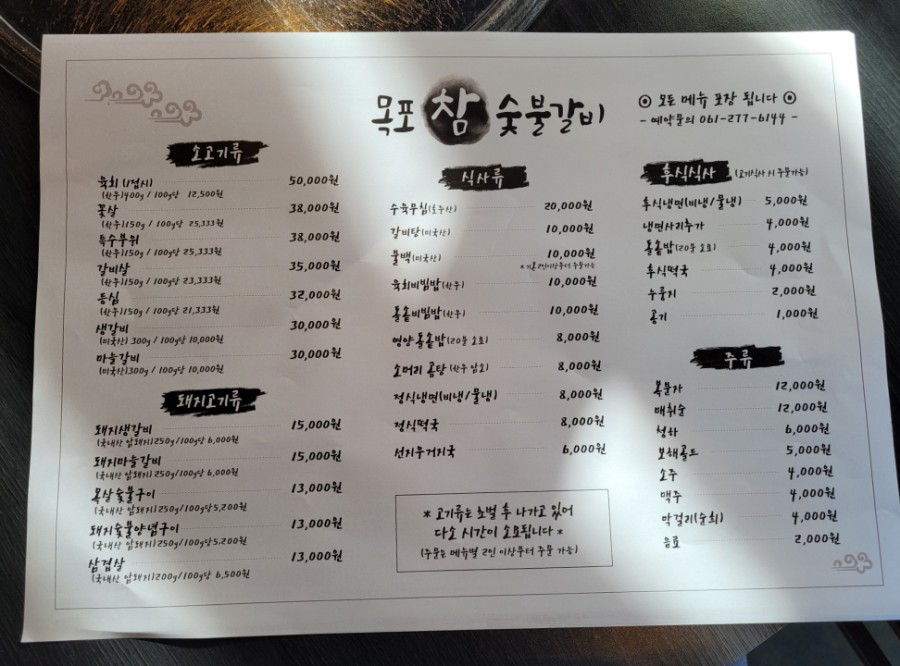 목포 참 숯불갈비
◎ 모든 메뉴 포장 됩니다 ◎
- 예약문의 061-277-6144 -
소고기류
육회 (1접시) 50,000원
(한우)400g / 100g당 12,500원
꽃살 38,000원
(한우)150g / 100g당 25,333원
특수부위 38,000원
(한우)150g / 100g당 25,333원
갈비살 35,000원
(한우)150g / 100g당 23,333원
등심 32,000원
(한우)150g / 100g당 21,333원
생갈비 30,000원
(미국산) 300g / 100g당 10,000원
마늘갈비 30,000원
(미국산)300g / 100g당 10,000원
돼지고기류
돼지생갈비 15,000원
(국내산 암돼지)250g/100g당 6,000원
돼지마늘갈비 15,000원
(국내산 암돼지)250g/100g당 6,000원
목살숯불구이 13,000원
(국내산 암돼지)250g/100g당5,200원
돼지숯불양념구이 13,000원
(국내산 암돼지)250g/100g당5,200원
삼겹살 13,000원
(국내산 암돼지)200g/100g당 6,500원
식사류
수육무침(호주산) 20,000원
갈비탕(미국산) 10,000원
불백(미국산) 10,000원
*기본2인이상부터 주문가능
육회비빔밥(한우) 10,000원
돌솥비빔밥(한우) 10,000원
영양돌솥밥(20분 소요) 8,000원
소머리 곰탕(한우 암소) 8,000원
정식냉면(비냉/물냉) 8,000원
정식떡국 8,000원
선지우거지국 6,000원
* 고기류는 초벌 후 나가고 있어
다소 시간이 소요됩니다 *
(주문은 메뉴별 2인 이상부터 주문 가능)
후식식사 (고기식사 시 주문가능)
후식냉면(비냉/물냉) 5,000원
냉면사리추가 4,000원
돌솥밥(20분 소요) 4,000원
후식떡국 4,000원
누룽지 2,000원
공기 1,000원
주류
복분자 12,000원
매취순 12,000원
청하 6,000원
보해골드 5,000원
소주 4,000원
맥주 4,000원
막걸리(순희) 4,000원
음료 2,000원